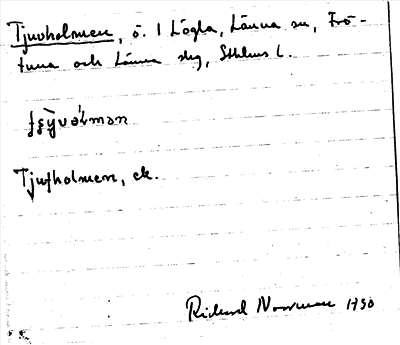 Tjuvholmen, ö. I Lögla, Länna sn, Frö-
tuna och Länna skg, Sthlms l.
Tjufholmen, ek.
Richard Norrman 1930